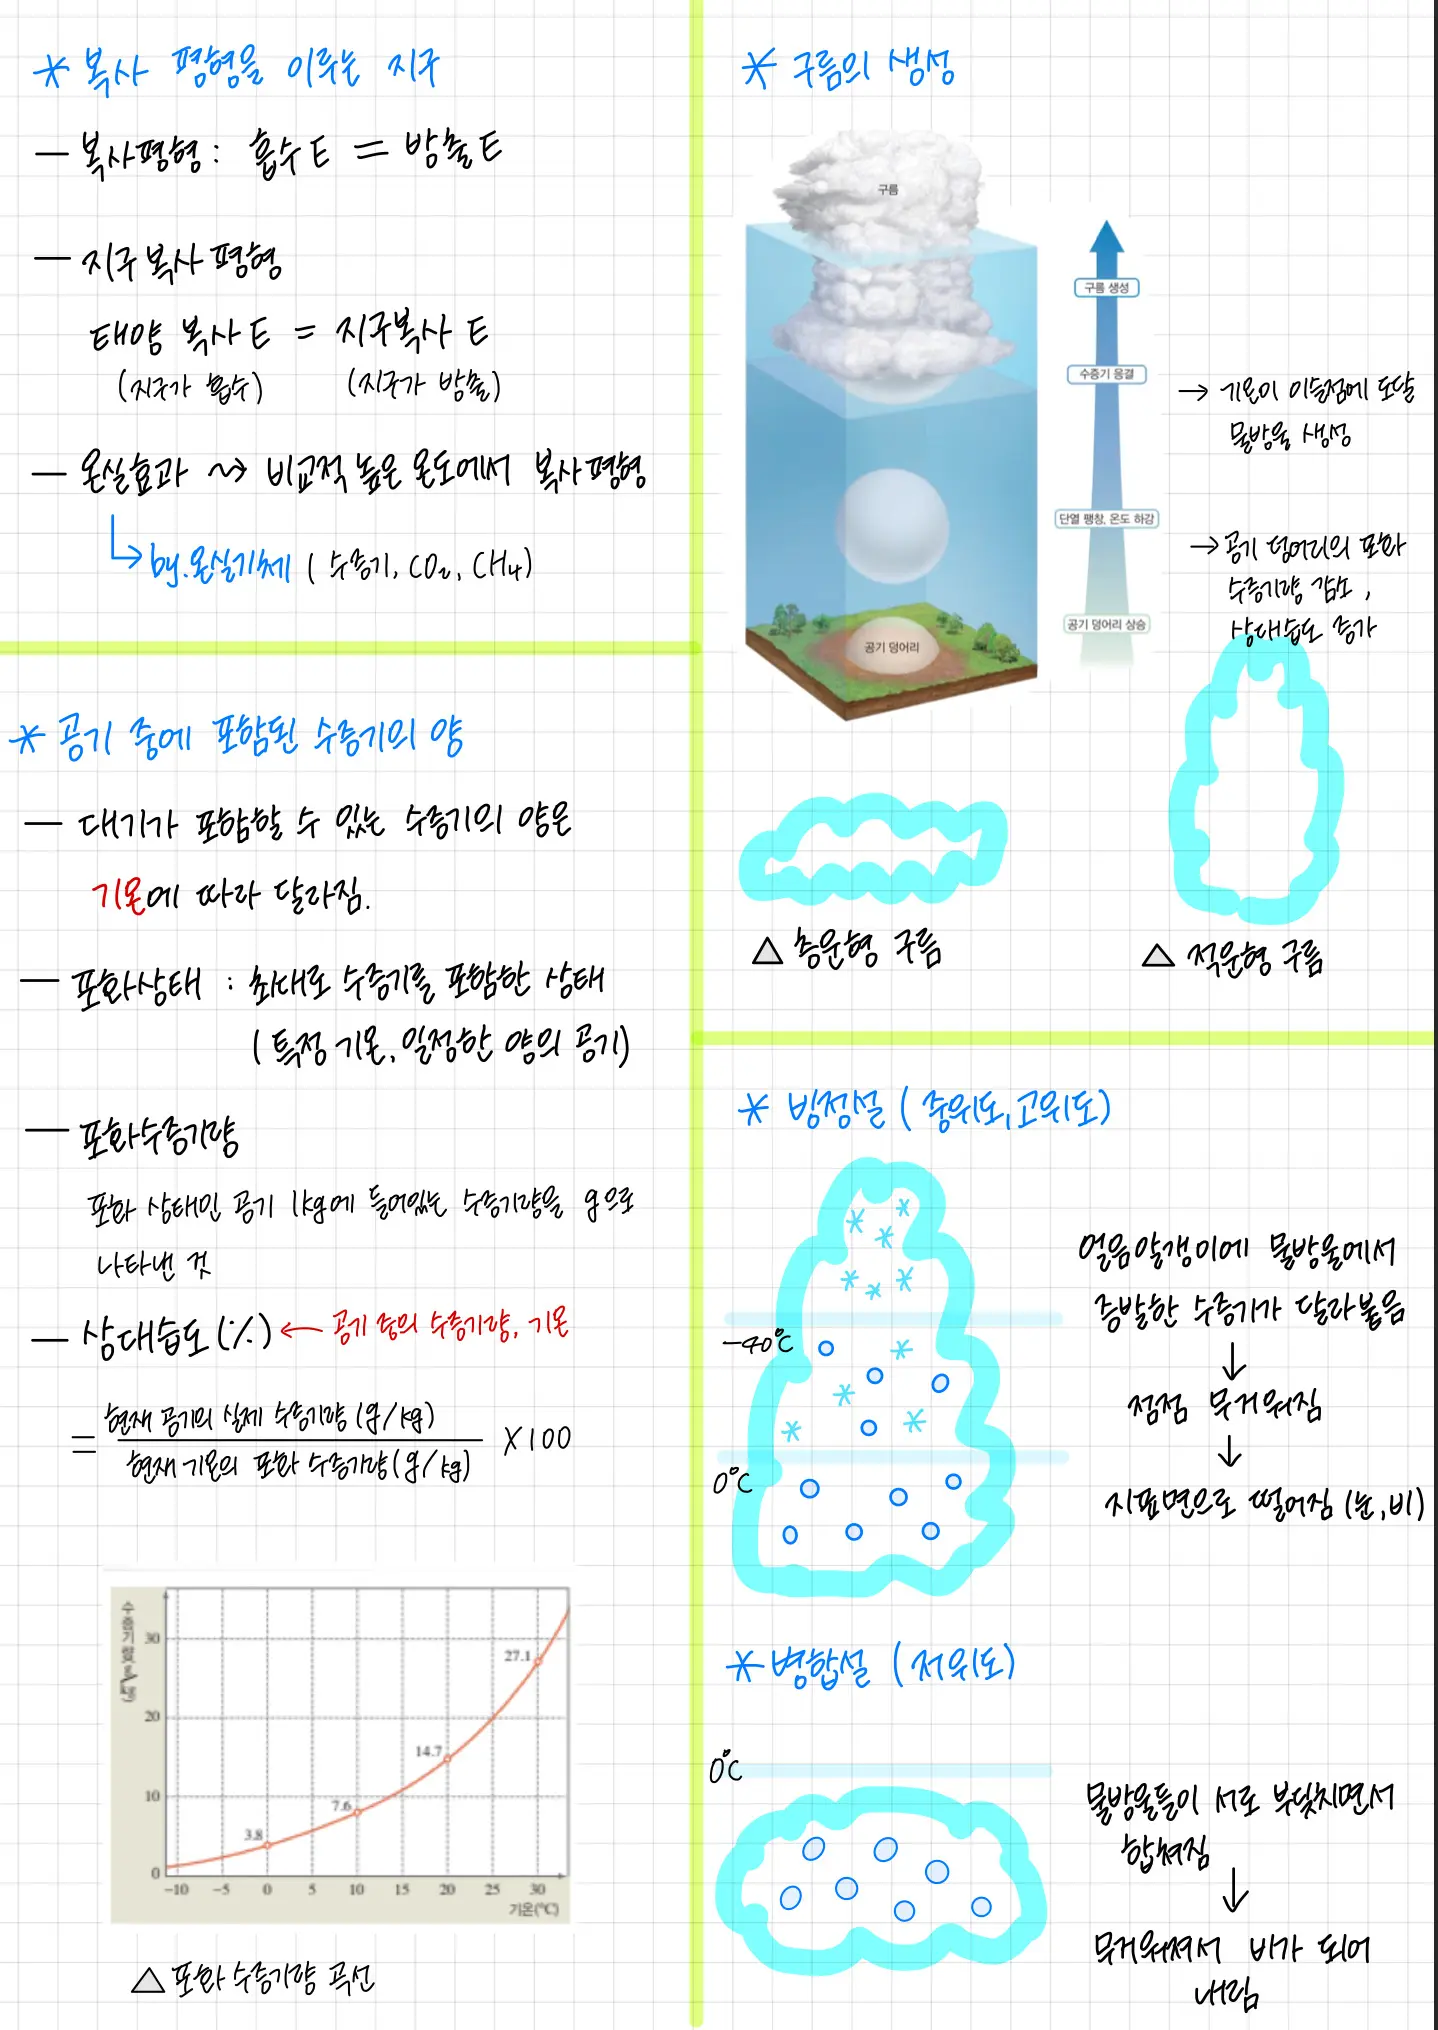 * 복사 평형을 이루는 지구
— 복사평형 : 흡수 E = 방출 E
— 지구 복사 평형
태양 복사 E = 지구복사 E
(지구가 흡수) (지구가 방출)
— 온실효과 ⇝ 비교적 높은 온도에서 복사평형
↳ by.온실기체 ( 수증기, CO₂, CH₄)
* 공기 중에 포함된 수증기의 양
— 대기가 포함할 수 있는 수증기의 양은
기온에 따라 달라짐.
— 포화상태 : 최대로 수증기를 포함한 상태
( 특정 기온, 일정한 양의 공기)
— 포화수증기량
포화 상태인 공기 1kg에 들어있는 수증기량을 g으로
나타낸 것
— 상대습도(%) ← 공기 중의 수증기량, 기온
= 현재 공기의 실제 수증기량 (g/kg)
현재 기온의 포화 수증기량(g/kg)
×100
수증기량(g/kg)
30
20
10
0
27.1
14.7
7.6
3.8
-10 -5 0 5 10 15 20 25 30
기온(℃)
△ 포화 수증기량 곡선
* 구름의 생성
구름
공기 덩어리
구름 생성
수증기 응결
단열 팽창, 온도 하강
공기 덩어리 상승
→ 기온이 이슬점에 도달
물방울 생성
→ 공기 덩어리의 포화
수증기량 감소 ,
상대습도 증가
△ 층운형 구름
△ 적운형 구름
* 빙정설 ( 중위도,고위도)
-40℃
0℃
얼음알갱이에 물방울에서
증발한 수증기가 달라붙음
↓
점점 무거워짐
↓
지표면으로 떨어짐 (눈,비)
* 병합설 ( 저위도)
0℃
물방울들이 서로 부딪치면서
합쳐짐
↓
무거워져서 비가 되어
내림